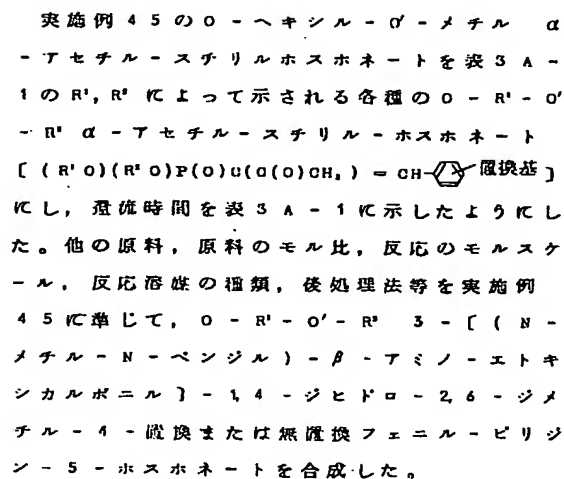 実施例45のO-ヘキシル-O'-メチル α
-アセチル-スチリルホスホネートを表3A-
1のR¹,R²によって示される各種のO-R¹-O'
-R² α-アセチル-スチリル-ホスホネート
[(R¹O)(R²O)P(O)C(C(O)CH₃)=CH-置換基]
にし,還流時間を表3A-1に示したようにし
た。他の原料,原料のモル比,反応のモルスケ
ール,反応溶媒の種類,後処理法等を実施例
45に準じて,O-R¹-O'-R² 3-[(N-
メチル-N-ベンジル)-β-アミノ-エトキ
シカルボニル]-1,4-ジヒドロ-2,6-ジメ
チル-4-置換または無置換フェニル-ピリジ
ン-5-ホスホネートを合成した。